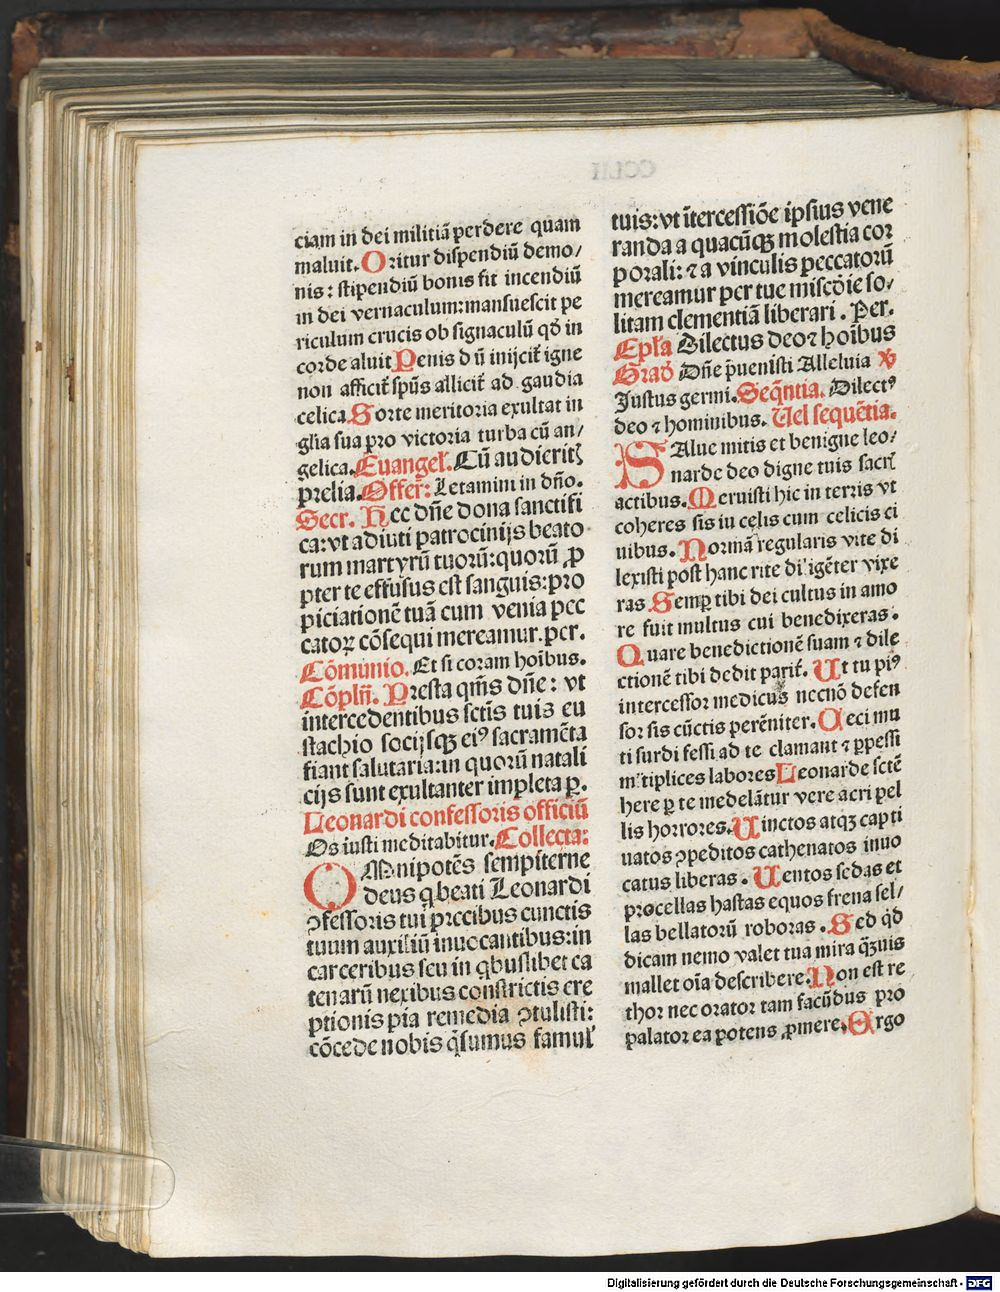 ciam in dei militiā perdere quam
maluit. Oritur dispendiū demo/
nis: stipendiū bonis fit incendiū
in dei vernaculum: mansuescit pe
riculum crucis ob signaculū qď in
corde aluit Penis dū inijcit᷑ igne
non afficit᷑ spūs allicit᷑ ad gaudia
celica. Sorte meritoria exultat in
glīa sua pro victoria turba cū an/
gelica. Euangeł. Cū audieritꝭ
prelia. Offer̄: Letamini in dño.
Secr. Hec dñe dona sanctifi
ca: vt adiuti patrocinijs beato
rum martyrū tuorū: quorū ꝓ
pter te effusus est sanguis: pro
piciationē tuā cum venia pec
catoꝝ cōsequi mereamur. per.
Cōmunio. Et si coram hoībus.
Cōpln̄. Presta qm̄s dñe: vt
intercedentibus sctīs tuis eu
stachio socijsqꝫ eiꝰ sacramēta
fiant salutaria: in quorū natali
cijs sunt exultanter impleta ꝑ.
Leonardi confessoris officiū
Os iusti meditabitur. Collecta:
OMnipotēs sempiterne
deus q̇ beati Leonardi
ꝯfessoris tui precibus cunctis
tuum auxiliū inuocantibus: in
carceribus seu in q̇buslibet ca
tenarū nexibus constrictis ere
ptionis pia remedia ꝯtulisti:
cōcede nobis q̄sumus famuł
tuis: vt īntercessiōe ipsius vene
randa a quacūqꝫ molestia cor
porali: ⁊ a vinculis peccatorū
mereamur per tue miscḋie so/
litam clementiā liberari. Per.
Epła Dilectus deo ⁊ hoībus
Graď Dñe p̄uenisti Alleluia ꝟ
Justus germi. Seq̄ntia. Dilectꝰ
deo ⁊ hominibus. Uel sequētia.
SAlue mitis et benigne leo/
narde deo digne tuis sacri
actibus. Meruisti hic in terris vt
coheres sis in celis cum celicis ci
uibus. Normā regularis vite di
lexisti post hanc rite diligēter vixe
ras Semꝑ tibi dei cultus in amo
re fuit multus cui benedixeras.
Quare benedictionē suam ⁊ dile
ctionē tibi dedit parit᷑. Ut tu piꝰ
intercessor medicus necnō defen
sor sis cūctis perēniter. Ceci mu
ti surdi fessi ad te clamant ⁊ ꝑpessi
mltiplices labores Leonarde sctē
here ꝑ te medelātur vere acri pel
lis horrores. Uinctos atqꝫ capti
uatos ꝯpeditos cathenatos inuo
catus liberas. Uentos sedas et
procellas hastas equos frena sel/
las bellatorū roboras. Sed qď
dicam nemo valet tua mira q̄ꝫuis
mallet oīa describere. Non est re
thor nec orator tam facūdus pro
palator ea potens ꝓmere. Ergo
Digitalisierung gefördert durch die Deutsche Forschungsgemeinschaft - DFG